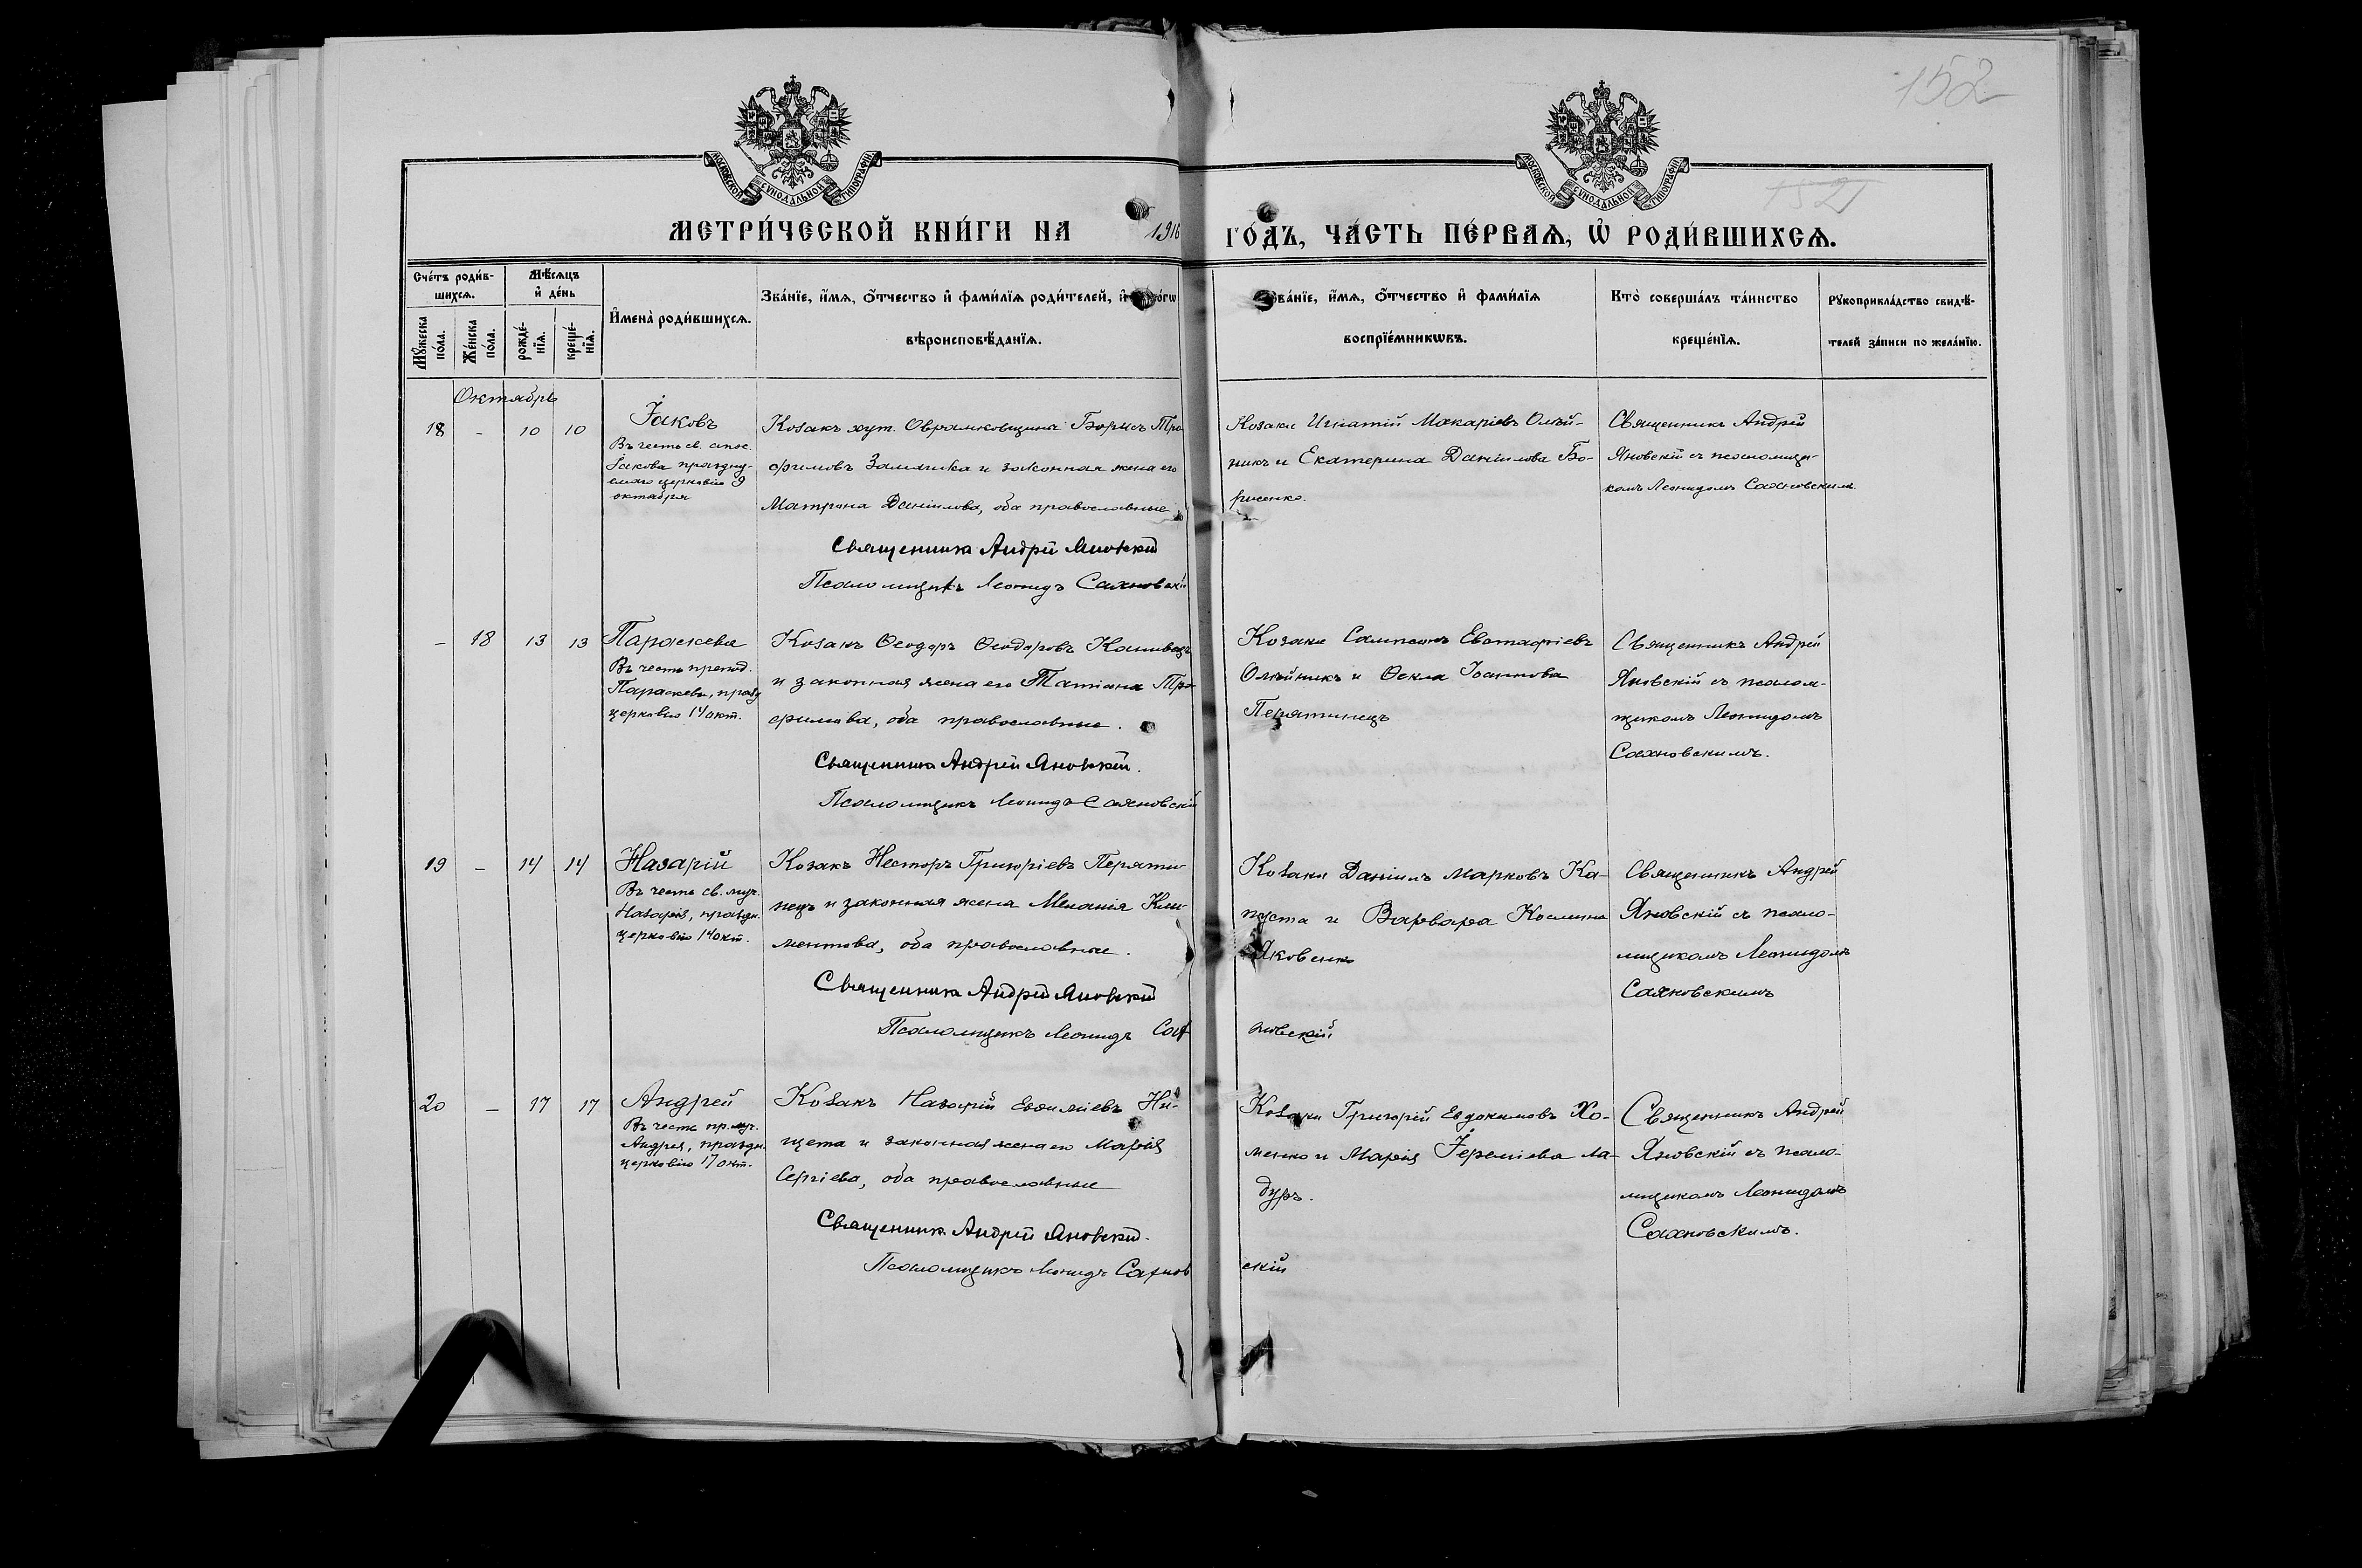 152
МОСКОВСКОЙ СѴНОДАЛЬНОЙ ТИПОГРАФІИ
МОСКОВСКОЙ СѴНОДАЛЬНОЙ ТИПОГРАФІИ
152
МЕТРИ́ЧЕСКОЙ КНИ́ГИ НА 1916 ГО́ДЪ, ЧА́СТЬ ПЕ́РВАѦ, Ѡ҆ РОДИ́ВШИХСѦ.
Сче́тъ роди́в-
шихсѧ.
Мѣ́сѧцъ
и҆ де́нь
Мꙋ́жеска по́ла.
Же́нска по́ла.
рожде́-
нїѧ.
креще́-
нїѧ.
И҆мена̀ роди́вшихсѧ.
Зва́нїе, и҆́мѧ, ѻ҆́тчество и҆ фами́лїѧ роди́телей, и҆
вѣроисповѣ́данїѧ.
Зва́нїе, и҆́мѧ, ѻ҆́тчество и҆ фами́лїѧ
воспрїе́мникѡвъ.
Кто̀ соверша́лъ та́инство
креще́нїѧ.
Рꙋкоприкла́дство свидѣ́-
телей за́писи по жела́нїю.
Октябрь
18 - 10 10
Іаковъ
Въ честь св. апос.
Іакова праздну-
емаго церковію 9
октября
Козакъ хут. Овраменовщина Борисъ Тро
фимовъ и законная жена его
Матрона Даніилова, оба православные
Священникъ Андрей Яновскій
Псаломщикъ Леонидъ Сахновскій
Козаки Игнатій Макаріевъ Олѣй-
никъ и Екатерина Даніилова Бо-
рисенко.
Священникъ Андрей
Яновскій съ псаломщи-
комъ Леонидомъ Сахновскимъ.
- 18 13 13
Параскева
Въ честь препод.
Параскевы, празд
церковію 14 окт.
Козакъ Ѳеодоръ Ѳеодоровъ
и законная жена его Татіана Тро
фимова, оба православные.
Священникъ Андрей Яновскій.
Псаломщикъ Леонидъ Сахновскій
Козаки Сампсонъ Евстафіевъ
Олѣйникъ и Ѳекла Іоаннова
Перятинецъ
Священникъ Андрей
Яновскій съ псалом-
щикомъ Леонидомъ
Сахновскимъ.
19 - 14 14
Назарій
Въ честь св. муч.
Назарія, праздн.
церковію 14 окт.
Козакъ Несторъ Григоріевъ Перяти-
нецъ и законная жена Меланія Кли-
ментова, оба православные.
Священникъ Андрей Яновскій
Псаломщикъ Леонидъ Сах
новскій
Козаки Даніилъ Марковъ Ка-
пуста и Варвара Космина
Яковенко
Священникъ Андрей
Яновскій съ псало-
мщикомъ Леонидомъ
Сахновскимъ
20 - 17 17
Андрей
Въ честь пр. муч.
Андрея, праздн.
церковію 17 окт.
Козакъ Назарій Евѳиміевъ Ни-
щета и законная жена его Марія
Сергіева, оба православные
Священникъ Андрей Яновскій.
Псаломщикъ Леонидъ Сахнов
скій
Козаки Григорій Евдокимовъ Хо-
менко и Марія Іереміева Ла-
дуръ.
Священникъ Андрей
Яновскій съ псало-
мщикомъ Леонидомъ
Сахновскимъ.